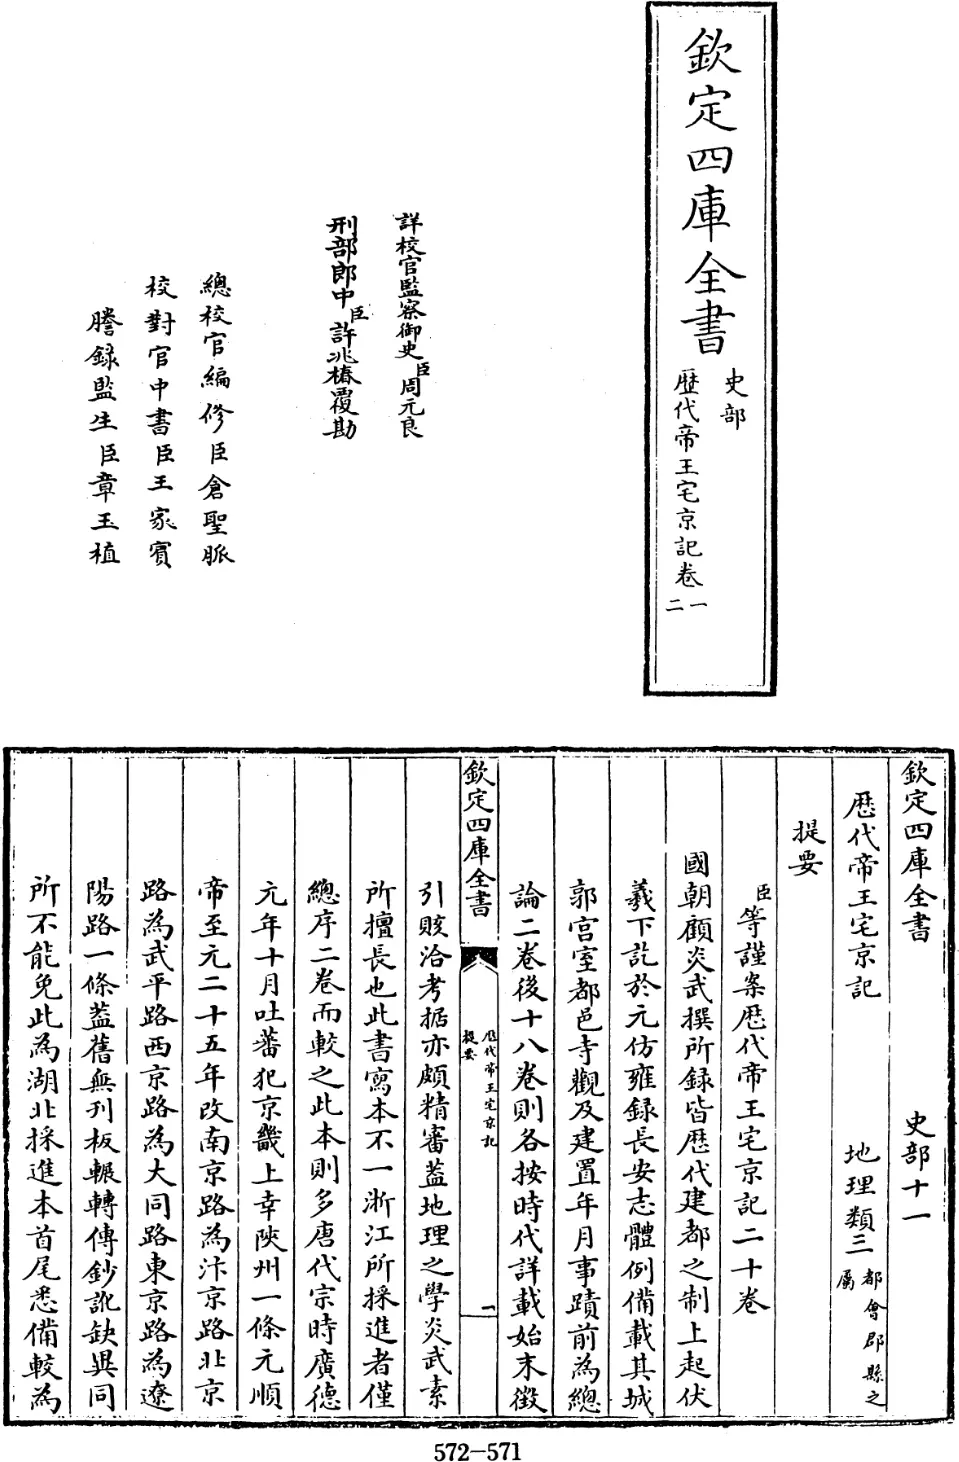 欽定四庫全書
史部
歷代帝王宅京記卷一
二
詳校官監察御史臣周元良
刑部郎中臣許兆椿覆勘
總校官編修臣倉聖脈
校對官中書臣王家賓
謄録監生臣章玉植
欽定四庫全書 史部十一
歷代帝王宅京記 地理類三都會郡縣之
屬
提要
臣等謹案歷代帝王宅京記二十卷
國朝顧炎武撰所録皆歷代建都之制上起伏
羲下訖於元仿雍録長安志體例備載其城
郭宫室都邑寺觀及建置年月事蹟前為總
論二卷後十八卷則各按時代詳載始末徵
欽定四庫全書
歷代帝王宅京記
提要
一
引賅洽考据亦頗精審蓋地理之學炎武素
所擅長也此書寫本不一浙江所採進者僅
總序二卷而較之此本則多唐代宗時廣德
元年十月吐蕃犯京畿上幸陝州一條元順
帝至元二十五年改南京路為汴京路北京
路為武平路西京路為大同路東京路為遼
陽路一條蓋舊無刊板輾轉傳鈔訛缺異同
所不能免此為湖北採進本首尾悉備較為
572—571